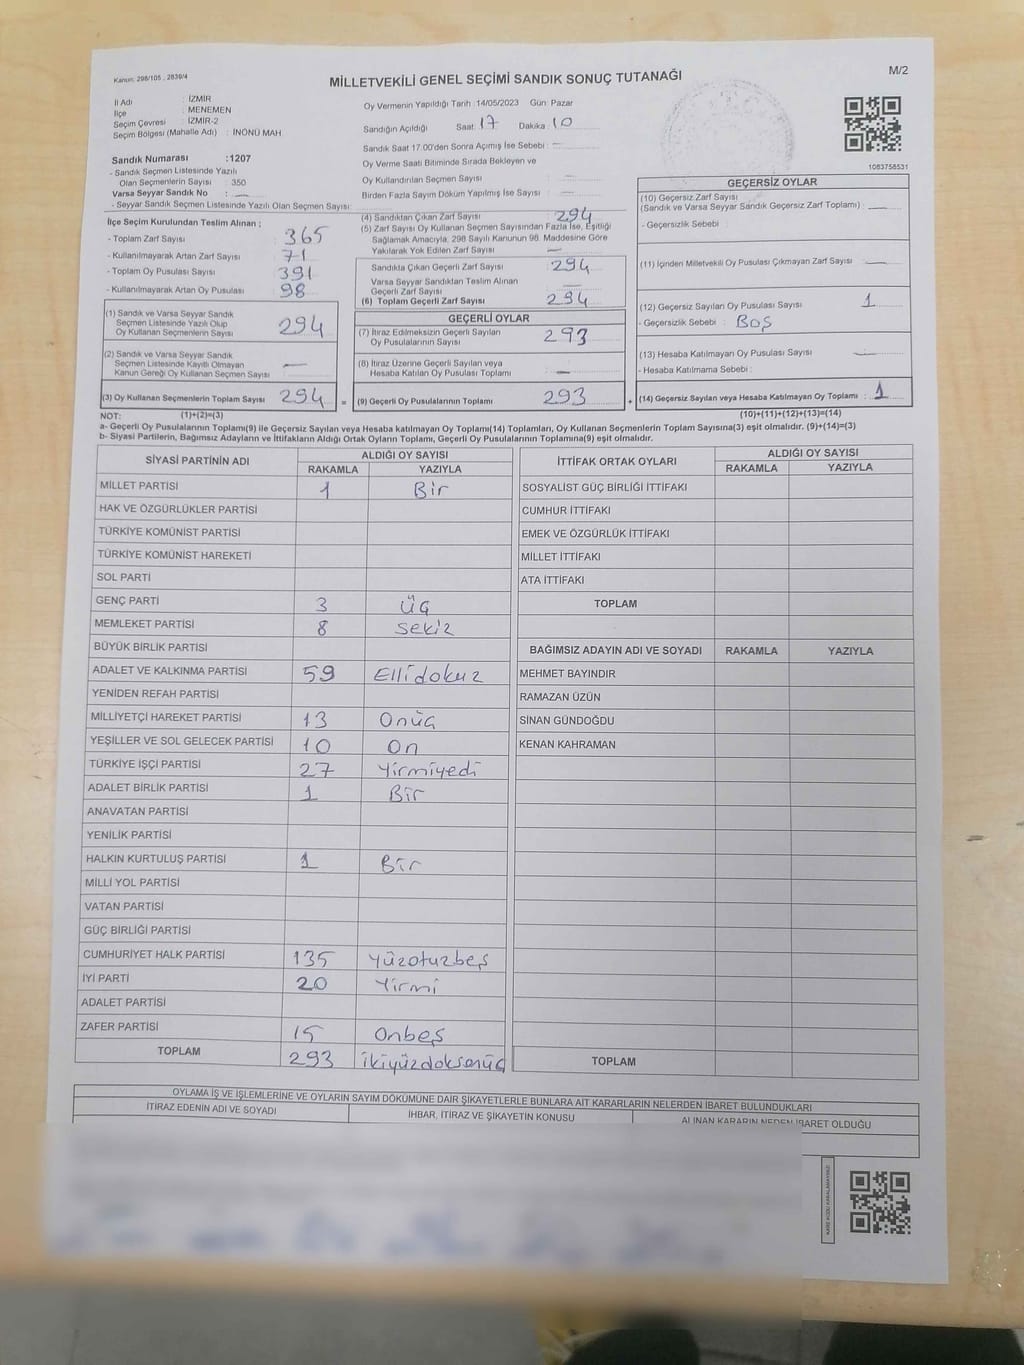 Kanun: 298/105 , 2839/4
MİLLETVEKİLİ GENEL SEÇİMİ SANDIK SONUÇ TUTANAĞI
M/2
İl Adı : İZMİR
İlçe : MENEMEN
Seçim Çevresi : İZMİR-2
Seçim Bölgesi (Mahalle Adı) : İNÖNÜ MAH
Sandık Numarası :1207
- Sandık Seçmen Listesinde Yazılı
Olan Seçmenlerin Sayısı : 350
Varsa Seyyar Sandık No : —
- Seyyar Sandık Seçmen Listesinde Yazılı Olan Seçmen Sayısı:
Oy Vermenin Yapıldığı Tarih :14/05/2023 Gün: Pazar
Sandığın Açıldığı Saat: 17 Dakika: 10
Sandık Saat 17.00'den Sonra Açımış İse Sebebi : —
Oy Verme Saati Bitiminde Sırada Bekleyen ve
Oy Kullandırılan Seçmen Sayısı : —
Birden Fazla Sayım Döküm Yapılmış İse Sayısı : —
1083758531
İlçe Seçim Kurulundan Teslim Alınan ;
- Toplam Zarf Sayısı : 365
- Kullanılmayarak Artan Zarf Sayısı : 71
- Toplam Oy Pusulası Sayısı : 391
- Kullanılmayarak Artan Oy Pusulası : 98
(1) Sandık ve Varsa Seyyar Sandık
Seçmen Listesinde Yazılı Olup
Oy Kullanan Seçmenlerin Sayısı : 294
(2) Sandık ve Varsa Seyyar Sandık
Seçmen Listesinde Kayıtlı Olmayan
Kanun Gereği Oy Kullanan Seçmen Sayısı : —
(3) Oy Kullanan Seçmenlerin Toplam Sayısı : 294 =
(4) Sandıktan Çıkan Zarf Sayısı : 294
(5) Zarf Sayısı Oy Kullanan Seçmen Sayısından Fazla İse, Eşitliği
Sağlamak Amacıyla, 298 Sayılı Kanunun 98. Maddesine Göre
Yakılarak Yok Edilen Zarf Sayısı : —
Sandıkta Çıkan Geçerli Zarf Sayısı : 294
Varsa Seyyar Sandıktan Teslim Alınan
Geçerli Zarf Sayısı : —
(6) Toplam Geçerli Zarf Sayısı : 294
GEÇERLİ OYLAR
(7) İtiraz Edilmeksizin Geçerli Sayılan
Oy Pusulalarının Sayısı : 293
(8) İtiraz Üzerine Geçerli Sayılan veya
Hesaba Katılan Oy Pusulası Toplamı : —
(9) Geçerli Oy Pusulalarının Toplamı : 293 +
GEÇERSİZ OYLAR
(10) Geçersiz Zarf Sayısı
(Sandık ve Varsa Seyyar Sandık Geçersiz Zarf Toplamı) : —
- Geçersizlik Sebebi :
(11) İçinden Milletvekili Oy Pusulası Çıkmayan Zarf Sayısı : —
(12) Geçersiz Sayılan Oy Pusulası Sayısı : 1
- Geçersizlik Sebebi : BOŞ
(13) Hesaba Katılmayan Oy Pusulası Sayısı : —
- Hesaba Katılmama Sebebi :
(14) Geçersiz Sayılan veya Hesaba Katılmayan Oy Toplamı : 1
NOT: (1)+(2)=(3) (10)+(11)+(12)+(13)=(14)
a- Geçerli Oy Pusulalarının Toplamı(9) ile Geçersiz Sayılan veya Hesaba katılmayan Oy Pusulası Toplamı(14) Toplamları, Oy Kullanan Seçmenlerin Toplam Sayısına(3) eşit olmalıdır. (9)+(14)=(3)
b- Siyasi Partilerin, Bağımsız Adayların ve İttifakların Aldığı Ortak Oyların Toplamı, Geçerli Oy Pusulalarının Toplamına(9) eşit olmalıdır.
SİYASİ PARTİNİN ADI ALDIĞI OY SAYISI
RAKAMLA YAZIYLA
MİLLET PARTİSİ 1 Bir
HAK VE ÖZGÜRLÜKLER PARTİSİ
TÜRKİYE KOMÜNİST PARTİSİ
TÜRKİYE KOMÜNİST HAREKETİ
SOL PARTİ
GENÇ PARTİ 3 üç
MEMLEKET PARTİSİ 8 sekiz
BÜYÜK BİRLİK PARTİSİ
ADALET VE KALKINMA PARTİSİ 59 Ellidokuz
YENİDEN REFAH PARTİSİ
MİLLİYETÇİ HAREKET PARTİSİ 13 Onüç
YEŞİLLER VE SOL GELECEK PARTİSİ 10 On
TÜRKİYE İŞÇİ PARTİSİ 27 Yirmiyedi
ADALET BİRLİK PARTİSİ 1 Bir
ANAVATAN PARTİSİ
YENİLİK PARTİSİ
HALKIN KURTULUŞ PARTİSİ 1 Bir
MİLLİ YOL PARTİSİ
VATAN PARTİSİ
GÜÇ BİRLİĞİ PARTİSİ
CUMHURİYET HALK PARTİSİ 135 Yüzotuzbeş
İYİ PARTİ 20 Yirmi
ADALET PARTİSİ
ZAFER PARTİSİ 15 Onbeş
TOPLAM 293 ikiyüzdoksenüç
İTTİFAK ORTAK OYLARI ALDIĞI OY SAYISI
RAKAMLA YAZIYLA
SOSYALİST GÜÇ BİRLİĞİ İTTİFAKI
CUMHUR İTTİFAKI
EMEK VE ÖZGÜRLÜK İTTİFAKI
MİLLET İTTİFAKI
ATA İTTİFAKI
TOPLAM
BAĞIMSIZ ADAYIN ADI VE SOYADI RAKAMLA YAZIYLA
MEHMET BAYINDIR
RAMAZAN ÜZÜN
SİNAN GÜNDOĞDU
KENAN KAHRAMAN
TOPLAM
OYLAMA İŞ VE İŞLEMLERİNE VE OYLARIN SAYIM DÖKÜMÜNE DAİR ŞİKAYETLERLE BUNLARA AİT KARARLARIN NELERDEN İBARET BULUNDUKLARI
İTİRAZ EDENİN ADI VE SOYADI
İHBAR, İTİRAZ VE ŞİKAYETİN KONUSU
ALINAN KARARIN NEDEN İBARET OLDUĞU